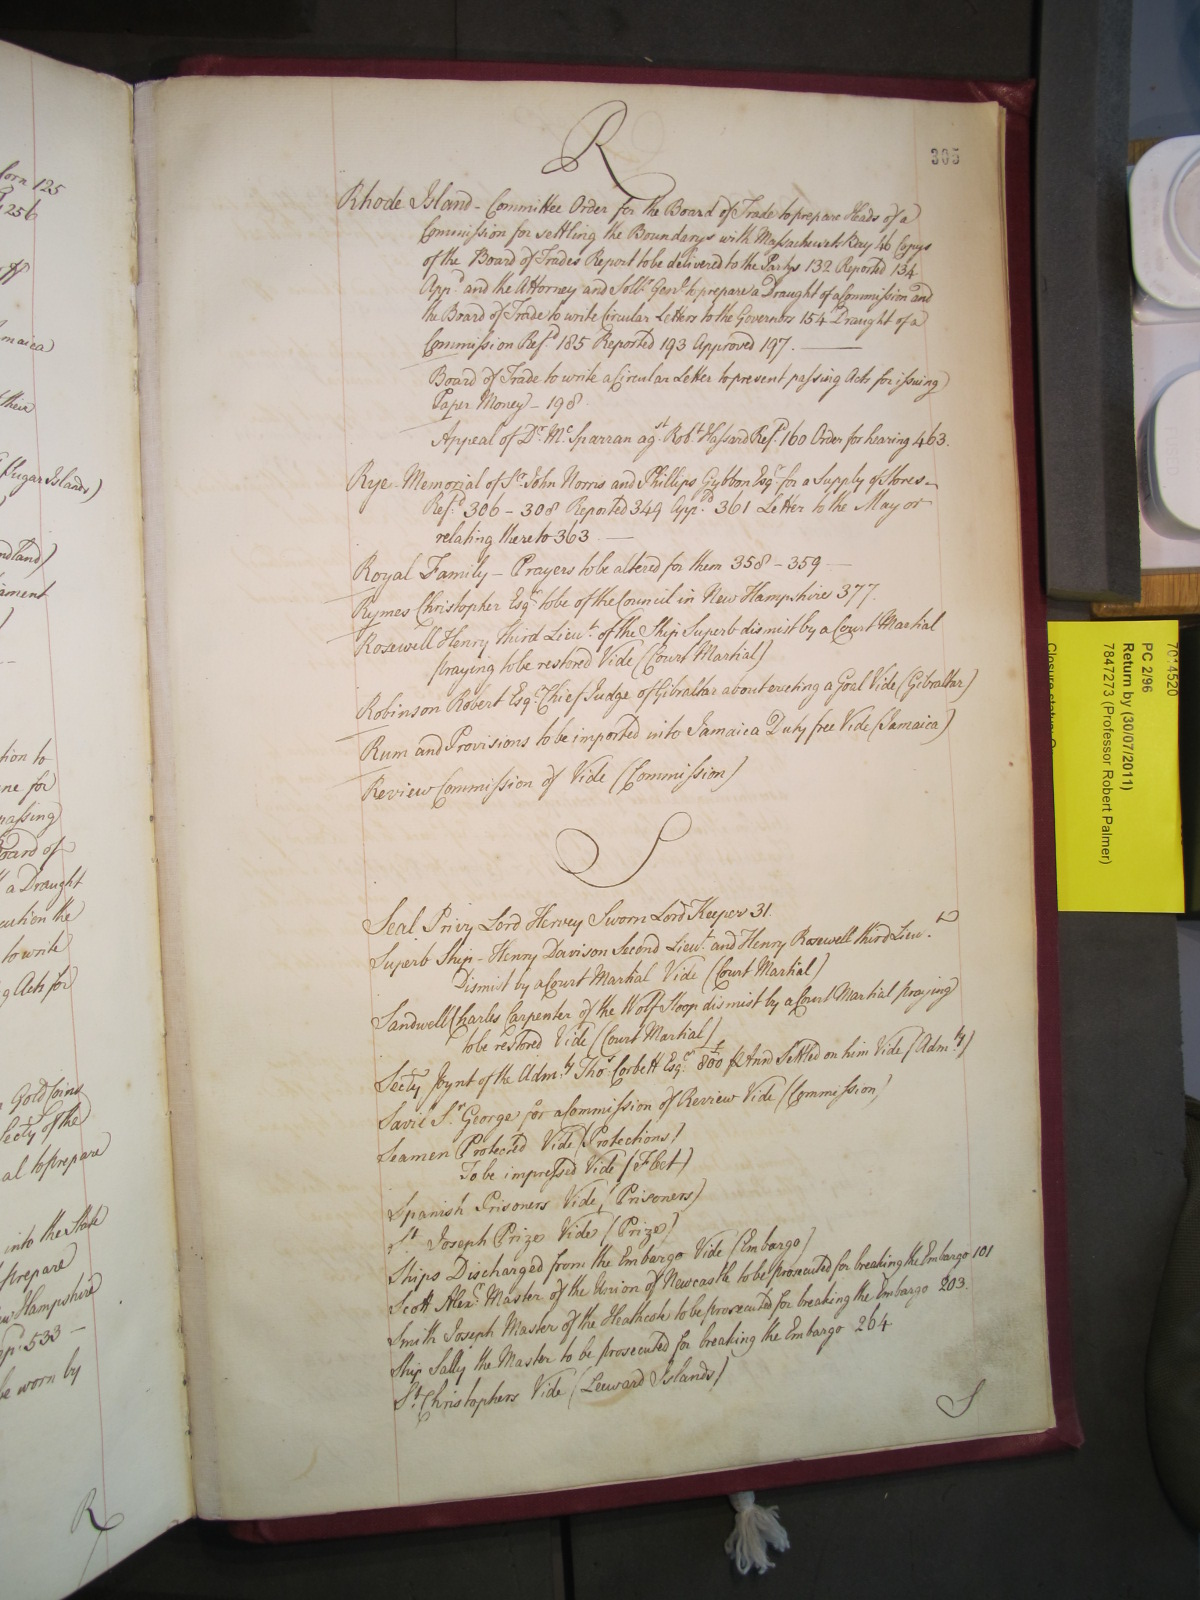 forn 125
256
maica)
their
Sugar Islands)
ndland)
iament
tion to
ne for
passing
Board of
a Draught
cution the
to write
g Acts for
Gold Coins
Secty of the
al to prepare
into the State
prepare
w Hampshire
pp. 533 -
be worn by
R
R
305
Rhode Island - Committee Order for the Board of Trade to prepare Heads of a
Commission for settling the Boundarys with Massachusets Bay 46 Copys
of the Board of Trades Report to be delivered to the Partys 132 Reported 134
App.d and the Attorney and Soll.r Gen.l to prepare a Draught of a Commission and
the Board of Trade to write Circular Letters to the Governors 154 Draught of a
Commission Ref.d 185 Reported 193 Approved 197.
Board of Trade to write a Circular Letter to prevent passing Acts for issuing
Paper Money - 198
Appeal of D.r M.c Sparran ag.st Rob.t Hassard Ref.d 160 Order for hearing 463.
Rye - Memorial of S.r John Norris and Phillips Gybbon Esq.r for a Supply of Stores -
Ref.d 306 - 308 Reported 349 App.d 361 Letter to the Mayor
relating thereto 363
Royal Family - Prayers to be altered for them 358 - 359
Rymes Christopher Esq.r to be of the Council in New Hampshire 377.
Rosewell Henry third Lieu.t of the Ship Superb dismist by a Court Martial
praying to be restored Vide (Court Martial)
Robinson Robert Esq.r Chief Judge of Gibraltar about erecting a Goal Vide (Gibraltar)
Rum and Provisions to be imported into Jamaica Duty free Vide (Jamaica)
Review Commission of Vide (Commission)
S
Seal Privy Lord Hervey Sworn Lord Keeper 31.
Superb Ship - Henry Davison Second Lieu.t and Henry Rosewell third Lieu.t
Dismist by a Court Martial Vide (Court Martial)
Sandwell Charles Carpenter of the Wolf Sloop dismist by a Court Martial praying
to be restored Vide (Court Martial)
Secty Joynt of the Adm.ty Tho.s Corbett Esq.r 800£ p Ann Settled on him Vide (Adm.ty)
Savil S.r George for a Commission of Review Vide (Commission)
Seamen Protected Vide (Protections)
To be impressed Vide (Fleet)
Spanish Prisoners Vide (Prisoners)
S.t Joseph Prize Vide (Prize)
Ships Discharged from the Embargo Vide (Embargo)
Scott Alex.r Master of the Union of Newcastle to be prosecuted for breaking the Embargo 101
Smith Joseph Master of the Heathcote to be prosecuted for breaking the Embargo 203.
Ship Sally the Master to be prosecuted for breaking the Embargo 264
S.t Christophers Vide (Leeward Islands)
S
7014520
PC 2/96
Return by (30/07/2011)
7847273 (Professor Robert Palmer)
Closure status: O